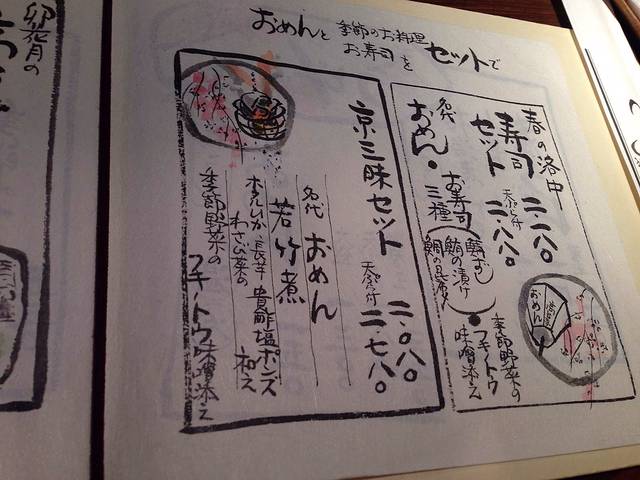 おめんと季節のお料理
お寿司をセットで
春の洛中
寿司
セット 二二一〇
天ぷら付 二、八八〇
名代
おめん・お寿司
三種
鯖の漬け
鯛の昆布〆
季節野菜の
フキノトウ
味噌添え
おめん
京三味セット 二、〇八〇
天ぷら付 二、七八〇
名代 おめん
若竹煮
ホタルイカ、長芋
わさび菜の
貴酢塩ポンズ
和え
季節野菜の
フキノトウ味噌添え
卯花月の